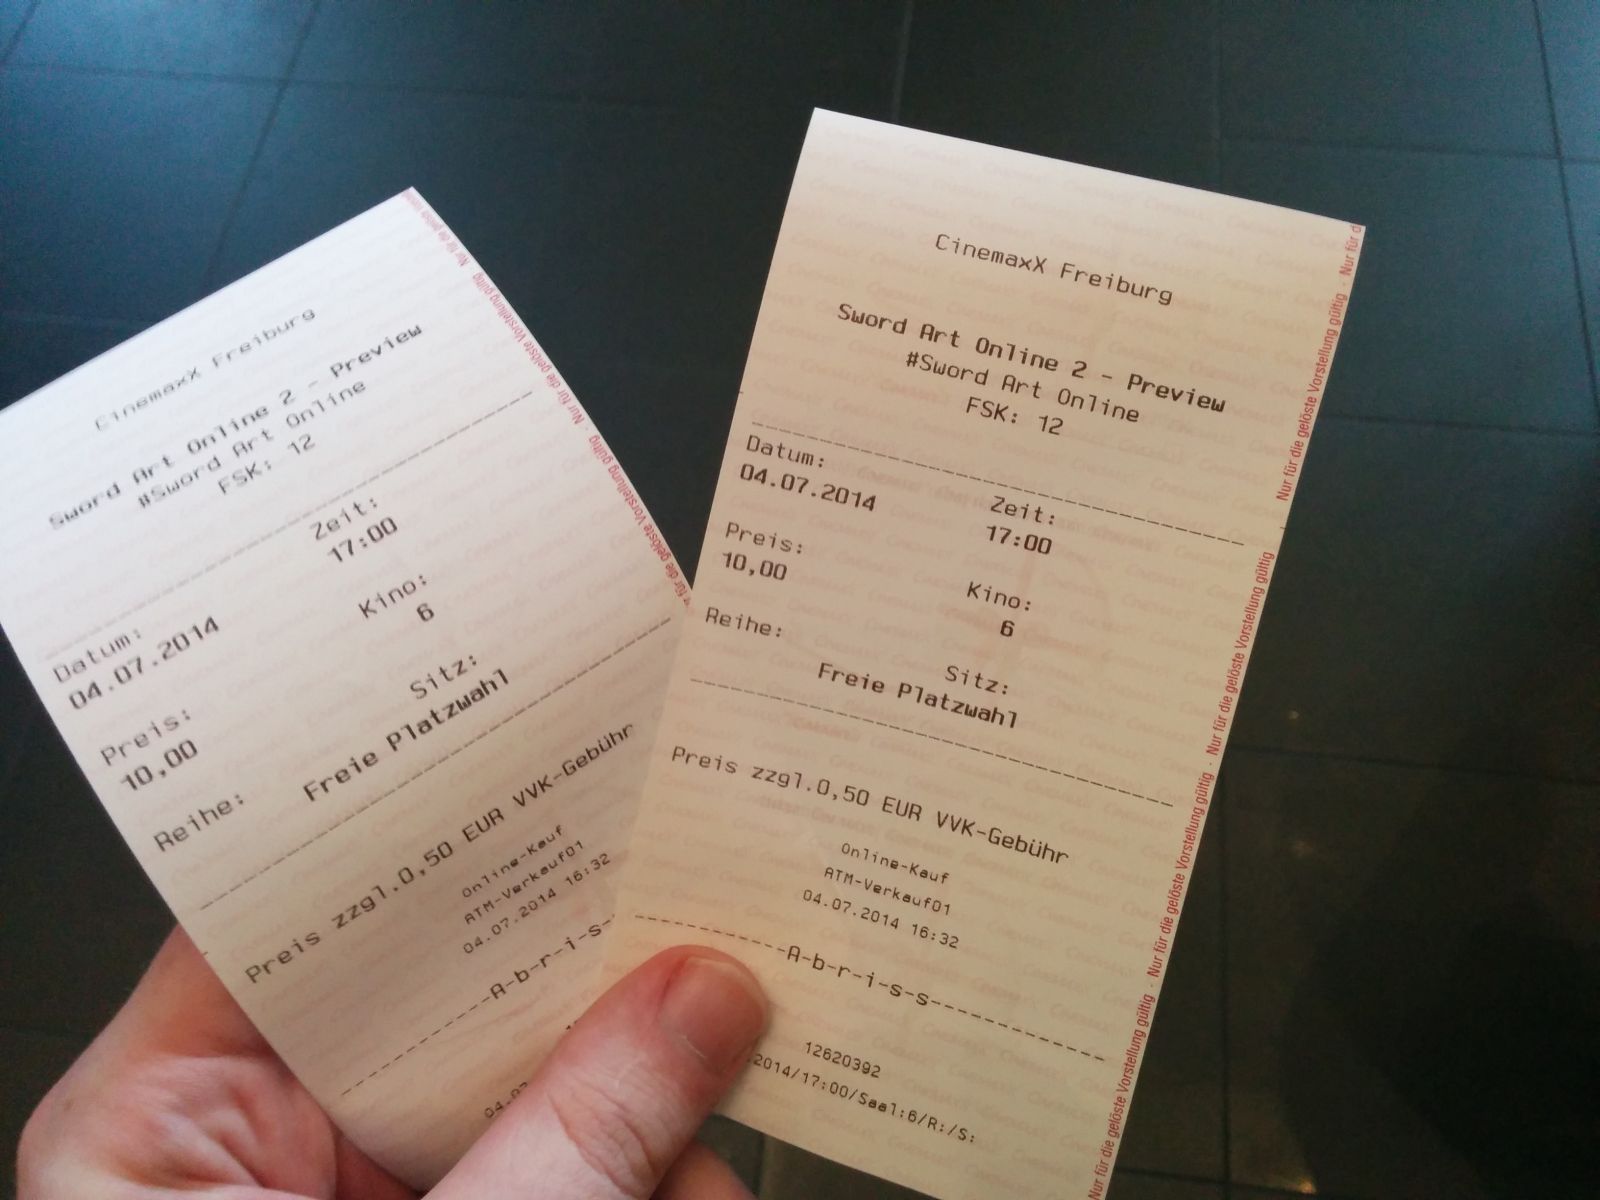 CinemaxX Freiburg
Sword Art Online 2 - Preview
#Sword Art Online
FSK: 12
Datum: Zeit:
04.07.2014 17:00
Preis: Kino:
10,00 6
Reihe: Sitz:
Freie Platzwahl
Preis zzgl.0,50 EUR VVK-Gebühr
Online-Kauf
ATM-Verkauf01
04.07.2014 16:32
A-b-r-i-s-
04.0
Nur für die gelöste Vorstellung gültig · Nur für die gelöste Vorstellung gültig · Nur für die gelöste Vorstellung gültig
CinemaxX Freiburg
Sword Art Online 2 - Preview
#Sword Art Online
FSK: 12
Datum: Zeit:
04.07.2014 17:00
Preis: Kino:
10,00 6
Reihe: Sitz:
Freie Platzwahl
Preis zzgl.0,50 EUR VVK-Gebühr
Online-Kauf
ATM-Verkauf01
04.07.2014 16:32
----------A-b-r-i-s-s------------
12620392
.2014/17:00/Saal:6/R:/S:
Nur für die gelöste Vorstellung gültig · Nur für die gelöste Vorstellung gültig · Nur für die gelöste Vorstellung gültig · Nur für die gelöste Vorstellung gültig · Nur für d